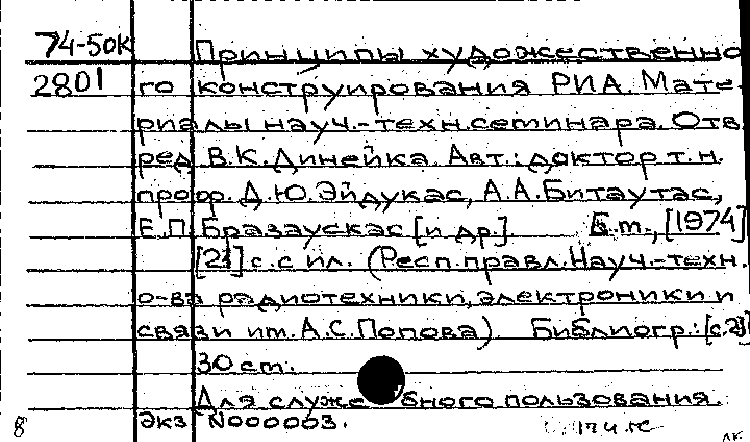 74-50к Принципы художественно
2801 го конструирования РИА. Мате-
риалы науч.-техн.семинара. Отв.
ред. В.К.Динейка. Авт.: доктор т.н.
проф. Д.Ю.Эйдукас, А.А.Битаутас,
Е.П.Бразаускас [и др.]. Б.т., [1974]
[23] с.с ил. (Респ.правл.Науч.-техн.
о-ва радиотехники,электроники и
связи им.А.С.Попова). Библиогр.: [с.23]
30 см.
Для служебного пользования.
8 экз N000003.